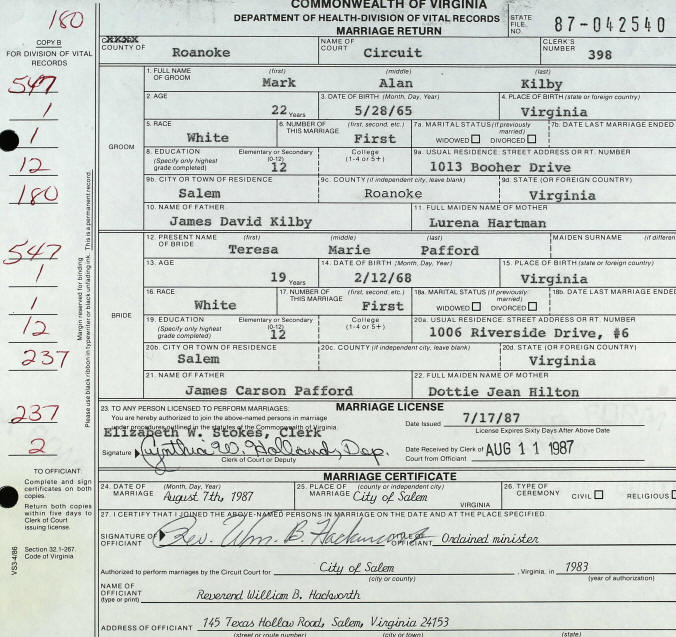 COMMONWEALTH OF VIRGINIA
DEPARTMENT OF HEALTH-DIVISION OF VITAL RECORDS
MARRIAGE RETURN
STATE FILE NO. 87-042540
180
COPY B
FOR DIVISION OF VITAL RECORDS
COUNTY OF Roanoke NAME OF COURT Circuit CLERK'S NUMBER 398
547
1
1
12
180
547
1
1
12
237
237
2
GROOM
1. FULL NAME OF GROOM (first) Mark (middle) Alan (last) Kilby
2. AGE 22 Years 3. DATE OF BIRTH (Month, Day, Year) 5/28/65 4. PLACE OF BIRTH (state or foreign country) Virginia
5. RACE White 6. NUMBER OF THIS MARRIAGE (first, second, etc.) First 7a. MARITAL STATUS (If previously married) WIDOWED DIVORCED 7b. DATE LAST MARRIAGE ENDED
8. EDUCATION (Specify only highest grade completed) Elementary or Secondary (0-12) 12 College (1-4 or 5+) 9a. USUAL RESIDENCE: STREET ADDRESS OR RT. NUMBER 1013 Booher Drive
9b. CITY OR TOWN OF RESIDENCE Salem 9c. COUNTY (if independent city, leave blank) Roanoke 9d. STATE (OR FOREIGN COUNTRY) Virginia
10. NAME OF FATHER James David Kilby 11. FULL MAIDEN NAME OF MOTHER Lurena Hartman
BRIDE
12. PRESENT NAME OF BRIDE (first) Teresa (middle) Marie (last) Pafford MAIDEN SURNAME (if differen
13. AGE 19 Years 14. DATE OF BIRTH (Month, Day, Year) 2/12/68 15. PLACE OF BIRTH (state or foreign country) Virginia
16. RACE White 17. NUMBER OF THIS MARRIAGE (first, second, etc.) First 18a. MARITAL STATUS (If previously married) WIDOWED DIVORCED 18b. DATE LAST MARRIAGE ENDED
19. EDUCATION (Specify only highest grade completed) Elementary or Secondary (0-12) 12 College (1-4 or 5+) 20a. USUAL RESIDENCE: STREET ADDRESS OR RT. NUMBER 1006 Riverside Drive, #6
20b. CITY OR TOWN OF RESIDENCE Salem 20c. COUNTY (if independent city, leave blank) 20d. STATE (OR FOREIGN COUNTRY) Virginia
21. NAME OF FATHER James Carson Pafford 22. FULL MAIDEN NAME OF MOTHER Dottie Jean Hilton
Margin reserved for binding
Please use black ribbon in typewriter or black unfading ink. This is a permanent record.
23. TO ANY PERSON LICENSED TO PERFORM MARRIAGES: MARRIAGE LICENSE
You are hereby authorized to join the above-named persons in marriage
under procedures outlined in the statutes of the Commonwealth of Virginia.
Date Issued 7/17/87
License Expires Sixty Days After Above Date
Elizabeth W. Stokes, Clerk
Signature Cynthia W. Holland, Dep.
Clerk of Court or Deputy
Date Received by Clerk of Court from Official AUG 11 1987
MARRIAGE CERTIFICATE
24. DATE OF MARRIAGE (Month, Day, Year) August 7th, 1987 25. PLACE OF MARRIAGE (county or independent city) City of Salem VIRGINIA 26. TYPE OF CEREMONY CIVIL RELIGIOUS
27. I CERTIFY THAT I JOINED THE ABOVE-NAMED PERSONS IN MARRIAGE ON THE DATE AND AT THE PLACE SPECIFIED.
SIGNATURE OF OFFICIANT Rev. Wm. B. Hackworth TITLE OF OFFICIANT Ordained minister
Authorized to perform marriages by the Circuit Court for City of Salem , Virginia, in 1983
(city or county) (year of authorization)
NAME OF OFFICIANT (type or print) Reverend William B. Hackworth
ADDRESS OF OFFICIANT 145 Texas Hollow Road, Salem, Virginia 24153
(street or route number) (city or town) (state)
TO OFFICIANT:
Complete and sign
certificates on both
copies.
Return both copies
within five days to
Clerk of Court
issuing license.
Section 32.1-267.
Code of Virginia
VS3-4/86